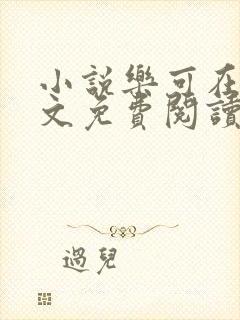 小説樂可在
文免費閱讀
過兒